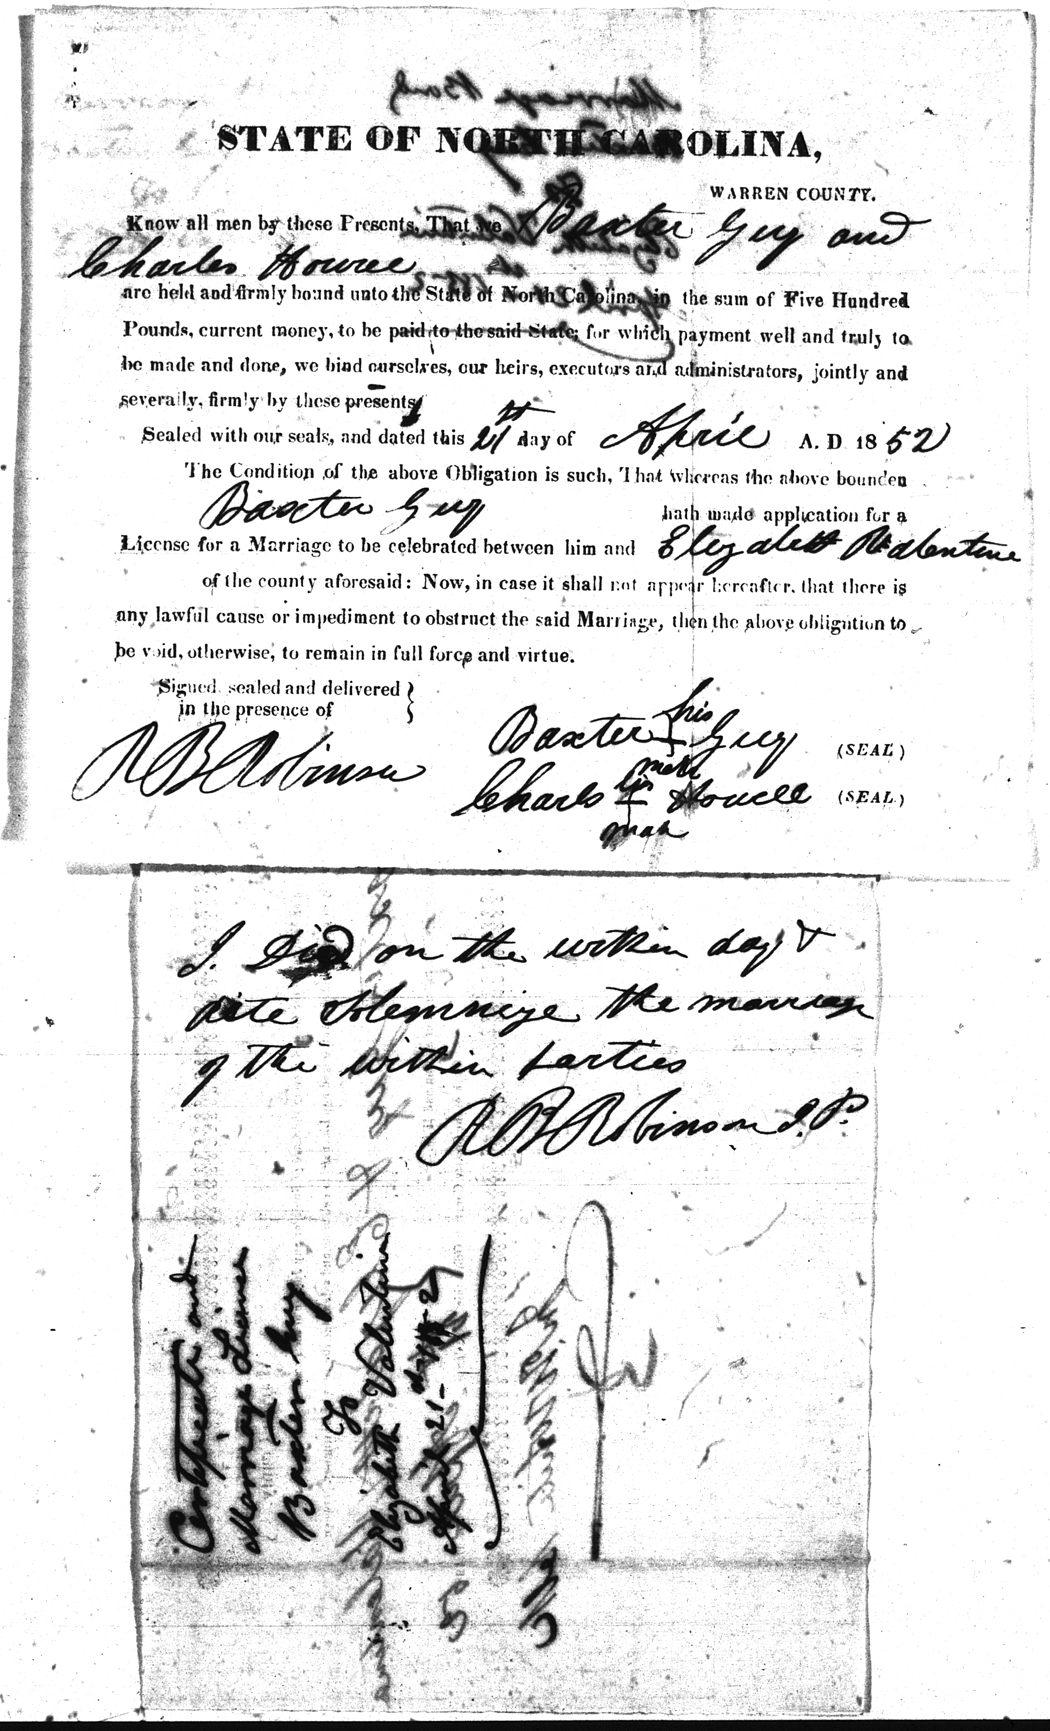 Marriage Bond
STATE OF NORTH CAROLINA,
WARREN COUNTY.
Know all men by these Presents, That we Baxter Guy and
Charles Howee
are held and firmly bound unto the State of North Carolina, in the sum of Five Hundred
Pounds, current money, to be paid to the said State; for which payment well and truly to
be made and done, we bind ourselves, our heirs, executors and administrators, jointly and
severally, firmly by these presents
Sealed with our seals, and dated this 21st day of April A. D 1852
The Condition of the above Obligation is such, That whereas the above bounden
Baxter Guy hath made application for a
License for a Marriage to be celebrated between him and Elizabeth Valentine
of the county aforesaid: Now, in case it shall not appear hereafter, that there is
any lawful cause or impediment to obstruct the said Marriage, then the above obligation to
be void, otherwise, to remain in full force and virtue.
Signed, sealed and delivered
in the presence of
R B Robinson
Baxter his mark Guy (SEAL)
Charls his mark Howell (SEAL)
I. Did on the within day &
date Solemnize the marriage
of the within parties
R B Robinson J. P.
Certificate and
Marriage License
Baxter Guy
To
Elizabeth Valentine
April 21